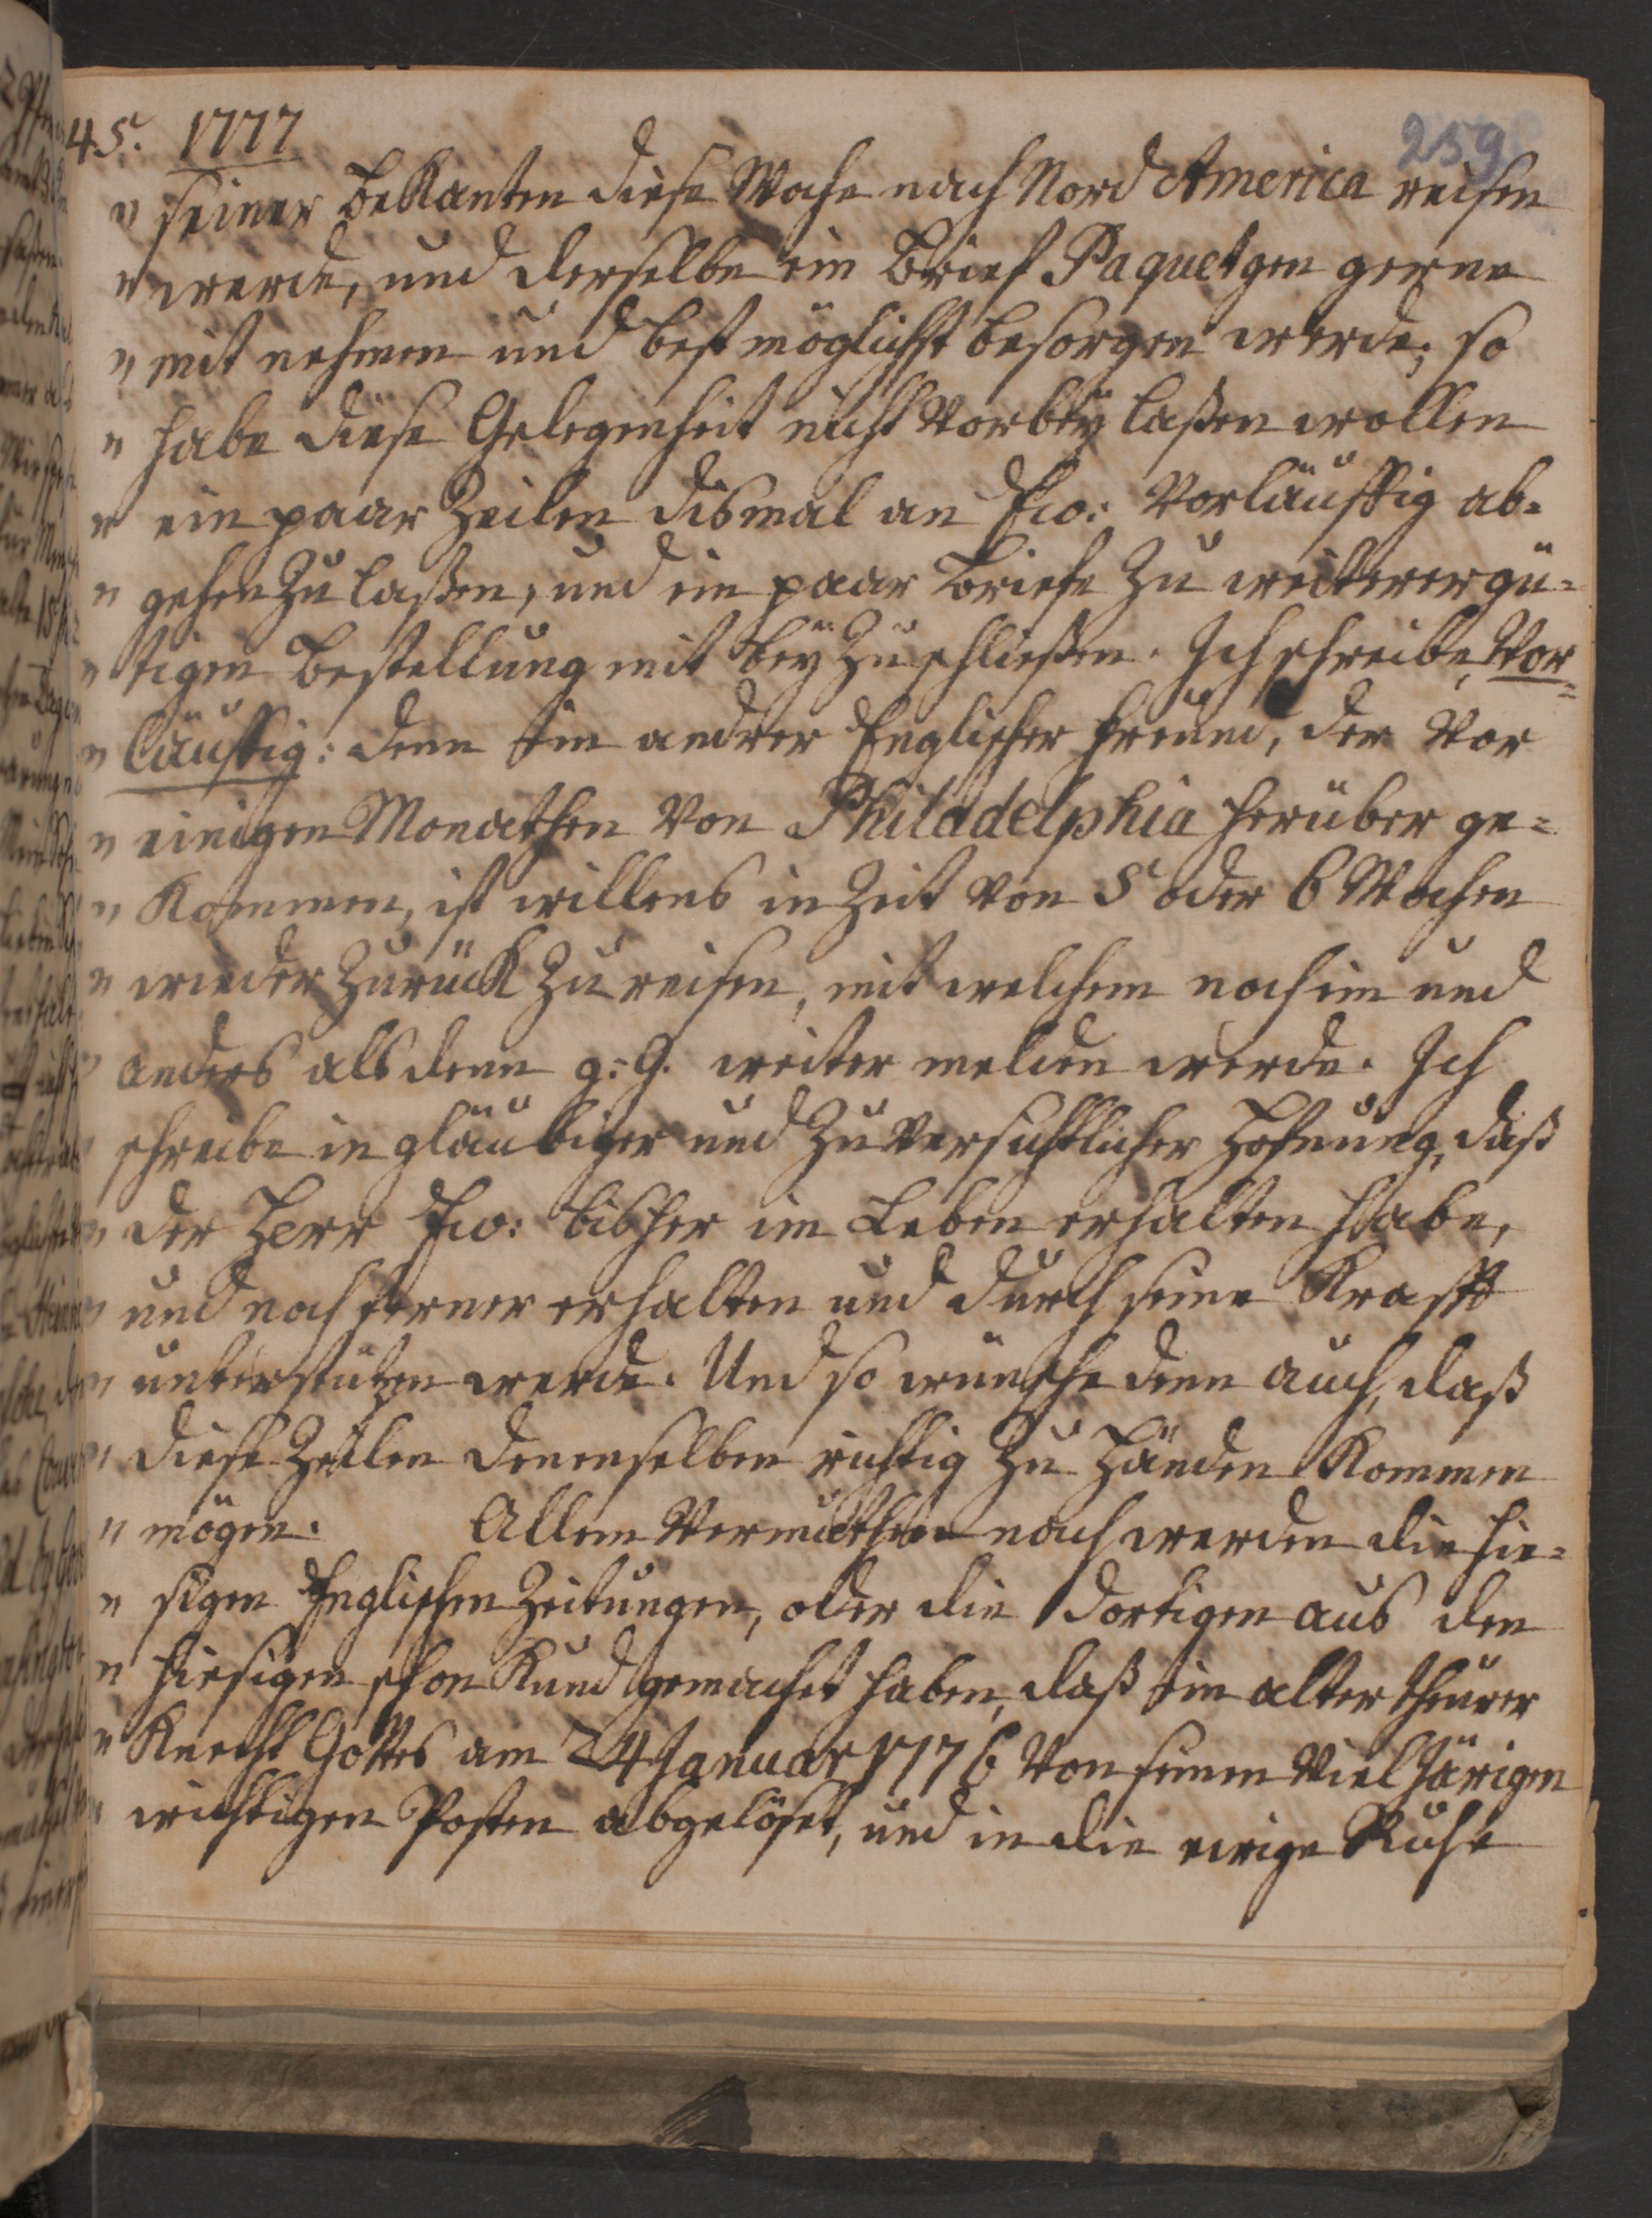 45. 1777
259
" seiner bekanten diese Woche nach Nord America reisen
" werde, und derselbe ein Brief Paquetgen gerne
" mit nehmen und bestmöglichst besorgen werde; so
" habe diese Gelegenheit nicht vorbey laßen wollen
" ein paar Zeilen dismal an Ew: vorläuffig ab-
" gehen zu laßen, und ein paar Briefe zu weiterer gü-
" tigen bestellung mit bey zu schließen. Ich schreibe, vor-
" läuffig: denn ein andrer Englischer freund, der vor
" einigen Monathen von Philadelphia herüber ge-
" kommen, ist willens in Zeit von 5 oder 6 Wochen
" wieder zurück zu reisen, mit welchem noch ein und
" anders alsdenn g: G. weiter melden werde. Ich
" schreibe in gläubiger und zuversichtlicher Hofnung, daß
" der Herr Ew: bisher im Leben erhalten habe,
" und noch ferner erhalten und durch seine Krafft
" unterstützen werde. Und so wünsche denn auch, daß
" diese Zeilen denenselben richtig zu Händen kommen
" mögen. Allem Vermuthen nach werden die hie-
" sigen Englischen Zeitungen, oder die dortigen aus den
" hiesigen schon kund gemachet haben, daß ein alter theurer
" Knecht Gottes am 24 Januar 1776 von seinem vieljärigen
" wichtigen Posten abgelöset, und in die ewige Ruhe